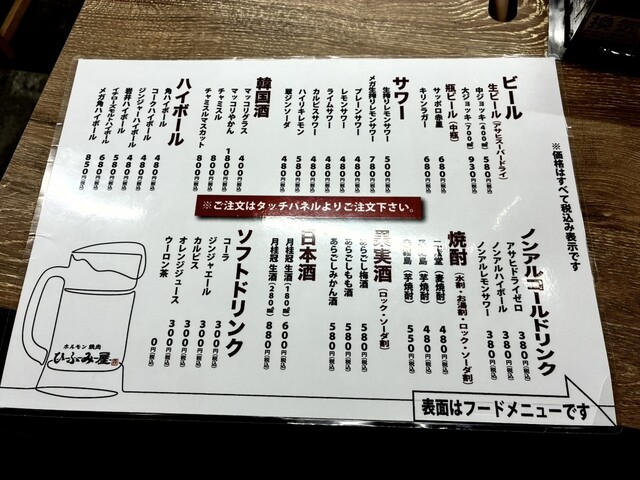 ※価格はすべて税込み表示です
ビール
生ビール(アサヒスーパードライ)
中ジョッキ(400㎖) 580円(税込)
大ジョッキ(700㎖) 930円(税込)
瓶ビール(中瓶)
サッポロ赤星 680円(税込)
キリンラガー 680円(税込)
サワー
生搾りレモンサワー 500円(税込)
メガ生搾りレモンサワー 780円(税込)
プレーンサワー 480円(税込)
レモンサワー 480円(税込)
ライムサワー 480円(税込)
カルピスサワー 480円(税込)
ハイリキレモン 580円(税込)
翠ジンソーダ 480円(税込)
韓国酒
マッコリグラス 400円(税込)
マッコリやかん 1800円(税込)
チャミスル 800円(税込)
チャミスルマスカット 800円(税込)
ハイボール
角ハイボール 480円(税込)
コークハイボール 480円(税込)
ジンジャーハイボール 480円(税込)
岩井ハイボール 580円(税込)
イチローズモルトハイボール 680円(税込)
メガ角ハイボール 850円(税込)
※ご注文はタッチパネルよりご注文下さい。
ノンアルコールドリンク
アサヒドライゼロ 380円(税込)
ノンアルハイボール 380円(税込)
ノンアルレモンサワー 380円(税込)
焼酎(水割・お湯割・ロック・ソーダ割)
(麦焼酎) 480円(税込)
(芋焼酎) 480円(税込)
島(芋焼酎) 550円(税込)
果実酒(ロック・ソーダ割)
あらごし梅酒 580円(税込)
あらごしもも酒 580円(税込)
あらごしみかん酒 580円(税込)
日本酒
月桂冠 生酒(180㎖) 600円(税込)
月桂冠 生酒(280㎖) 880円(税込)
ソフトドリンク
コーラ 300円(税込)
ジンジャエール 300円(税込)
カルピス 300円(税込)
オレンジジュース 300円(税込)
ウーロン茶 0円(税込)
ホルモン焼肉
いっぷみ屋
表面はフードメニューです